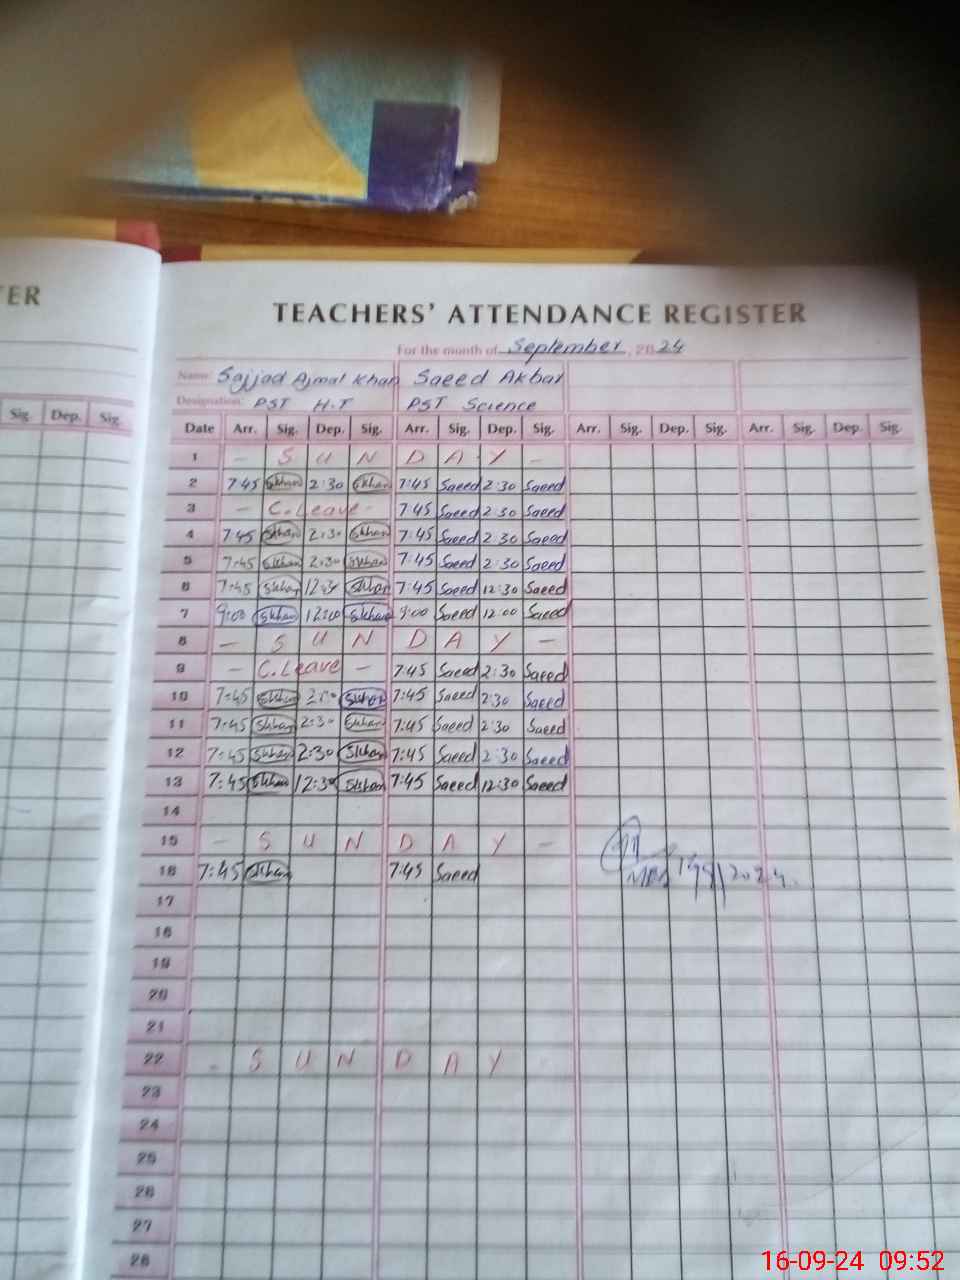 TER
TEACHERS' ATTENDANCE REGISTER
For the month of September, 2024
Name: Sajjad Ajmal Khan Saeed Akbar
Designation: PST H.T PST Science
Sig. Dep. Sig. Date Arr. Sig. Dep. Sig. Arr. Sig. Dep. Sig. Arr. Sig. Dep. Sig. Arr. Sig. Dep. Sig.
1 - S U N D A Y -
2 7:45 Skhan 2:30 Skhan 7:45 Saeed 2:30 Saeed
3 - C. Leave - 7:45 Saeed 2:30 Saeed
4 7:45 Skhan 2:30 Skhan 7:45 Saeed 2:30 Saeed
5 7:45 Skhan 2:30 Skhan 7:45 Saeed 2:30 Saeed
6 7:45 Skhan 12:30 Skhan 7:45 Saeed 12:30 Saeed
7 9:00 Skhan 12:00 Skhan 9:00 Saeed 12:00 Saeed
8 - S U N D A Y -
9 - C. Leave - 7:45 Saeed 2:30 Saeed
10 7:45 Skhan Skhan 7:45 Saeed 2:30 Saeed
11 7:45 Skhan 2:30 Skhan 7:45 Saeed 2:30 Saeed
12 7:45 Skhan 2:30 Skhan 7:45 Saeed 2:30 Saeed
13 7:45 Skhan 12:30 Skhan 7:45 Saeed 12:30 Saeed
14
15 - S U N D A Y -
16 7:45 Skhan 7:45 Saeed 2024.
17
18
19
20
21
22 - S U N D A Y -
23
24
25
26
27
28
16-09-24 09:52